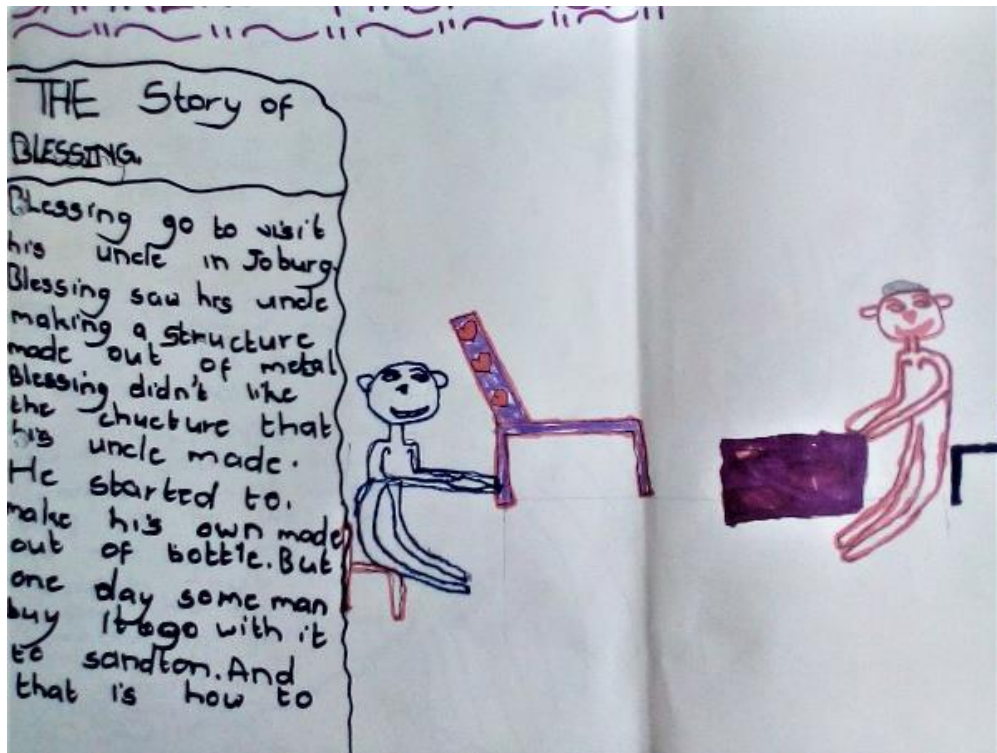 THE Story of
BLESSING.
Blessing go to visit
his uncle in Joburg
Blessing saw his uncle
making a structure
made out of metal
Blessing didn't like
the chucture that
his uncle made.
He started to.
make his own made
out of bottle. But
one day some man
buy it go with it
to sandton. And
that is how to